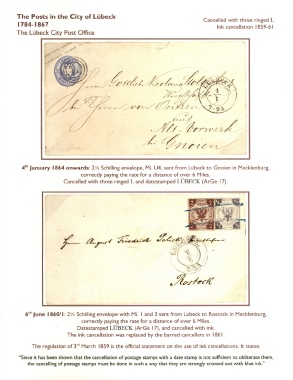 The Posts in the City of Lübeck
1784-1867
The Lübeck City Post Office
Cancelled with three ringed 1.
Ink cancellation 1859-61
Gnoien
4th January 1864 onwards: 2½ Schilling envelope, Mi. U4, sent from Lübeck to Gnoien in Mecklenburg,
correctly paying the rate for a distance of over 6 Miles.
Cancelled with three ringed 1. and datestamped LÜBECK (ArGe 17).
Herrn August Friedrich
Rostock
6th June 1860/1: 2½ Schilling envelope with Mi. 1 and 3 sent from Lübeck to Rostock in Mecklenburg,
correctly paying the rate for a distance of over 6 Miles.
Datestamped LÜBECK (ArGe 17), and cancelled with ink.
The ink cancellation was replaced by the barred cancellers in 1861.
The regulation of 3rd March 1859 is the official statement on the use of ink cancellations. It states:
"Since it has been shown that the cancellation of postage stamps with a date stamp is not sufficient to obliterate them,
the cancelling of postage stamps must be done in such a way that they are strongly crossed out with blue ink."